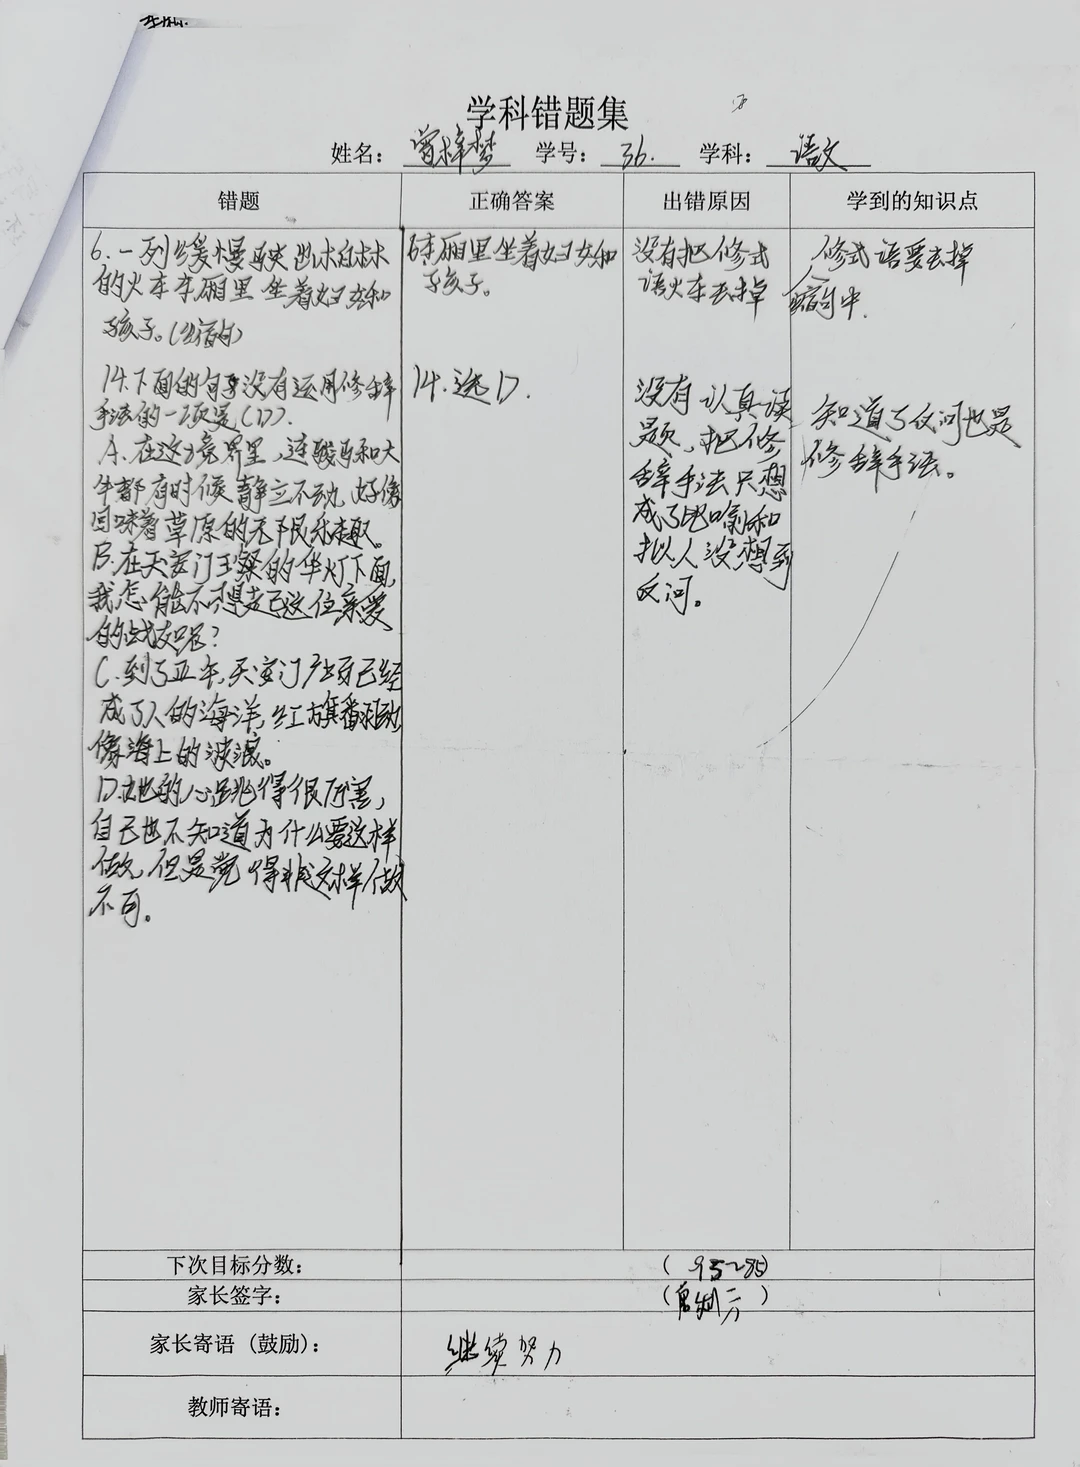 学科错题集
姓名：曾梓梦 学号：36. 学科：语文
错题 正确答案 出错原因 学到的知识点
6.一列缓慢驶出柏林
的火车车厢里坐着妇女和
孩子。(缩句)
14.下面的句子没有运用修辞
手法的一项是(D).
A.在这境界里,连骏马和大
牛都有时候静立不动,好像
回味着草原的无限乐趣。
B.在天安门璀璨的华灯下面,
我怎能不想起这位亲爱
的战友呢?
C.到了正午,天安门广场已经
成了人的海洋,红旗翻动,
像海上的波浪。
D.她的心跳得很厉害,
自己也不知道为什么要这样
做,但是觉得非这样做
不可。
6.车厢里坐着妇女和
孩子。
14.选D.
没有把修式
语火车去掉
没有认真读
题,把修
辞手法只想
成了比喻和
拟人没想到
反河。
修式语要去掉
缩句中.
知道了反问也是
修辞手法。
下次目标分数： (95~85)
家长签字：
家长寄语（鼓励）： 继续努力
教师寄语：